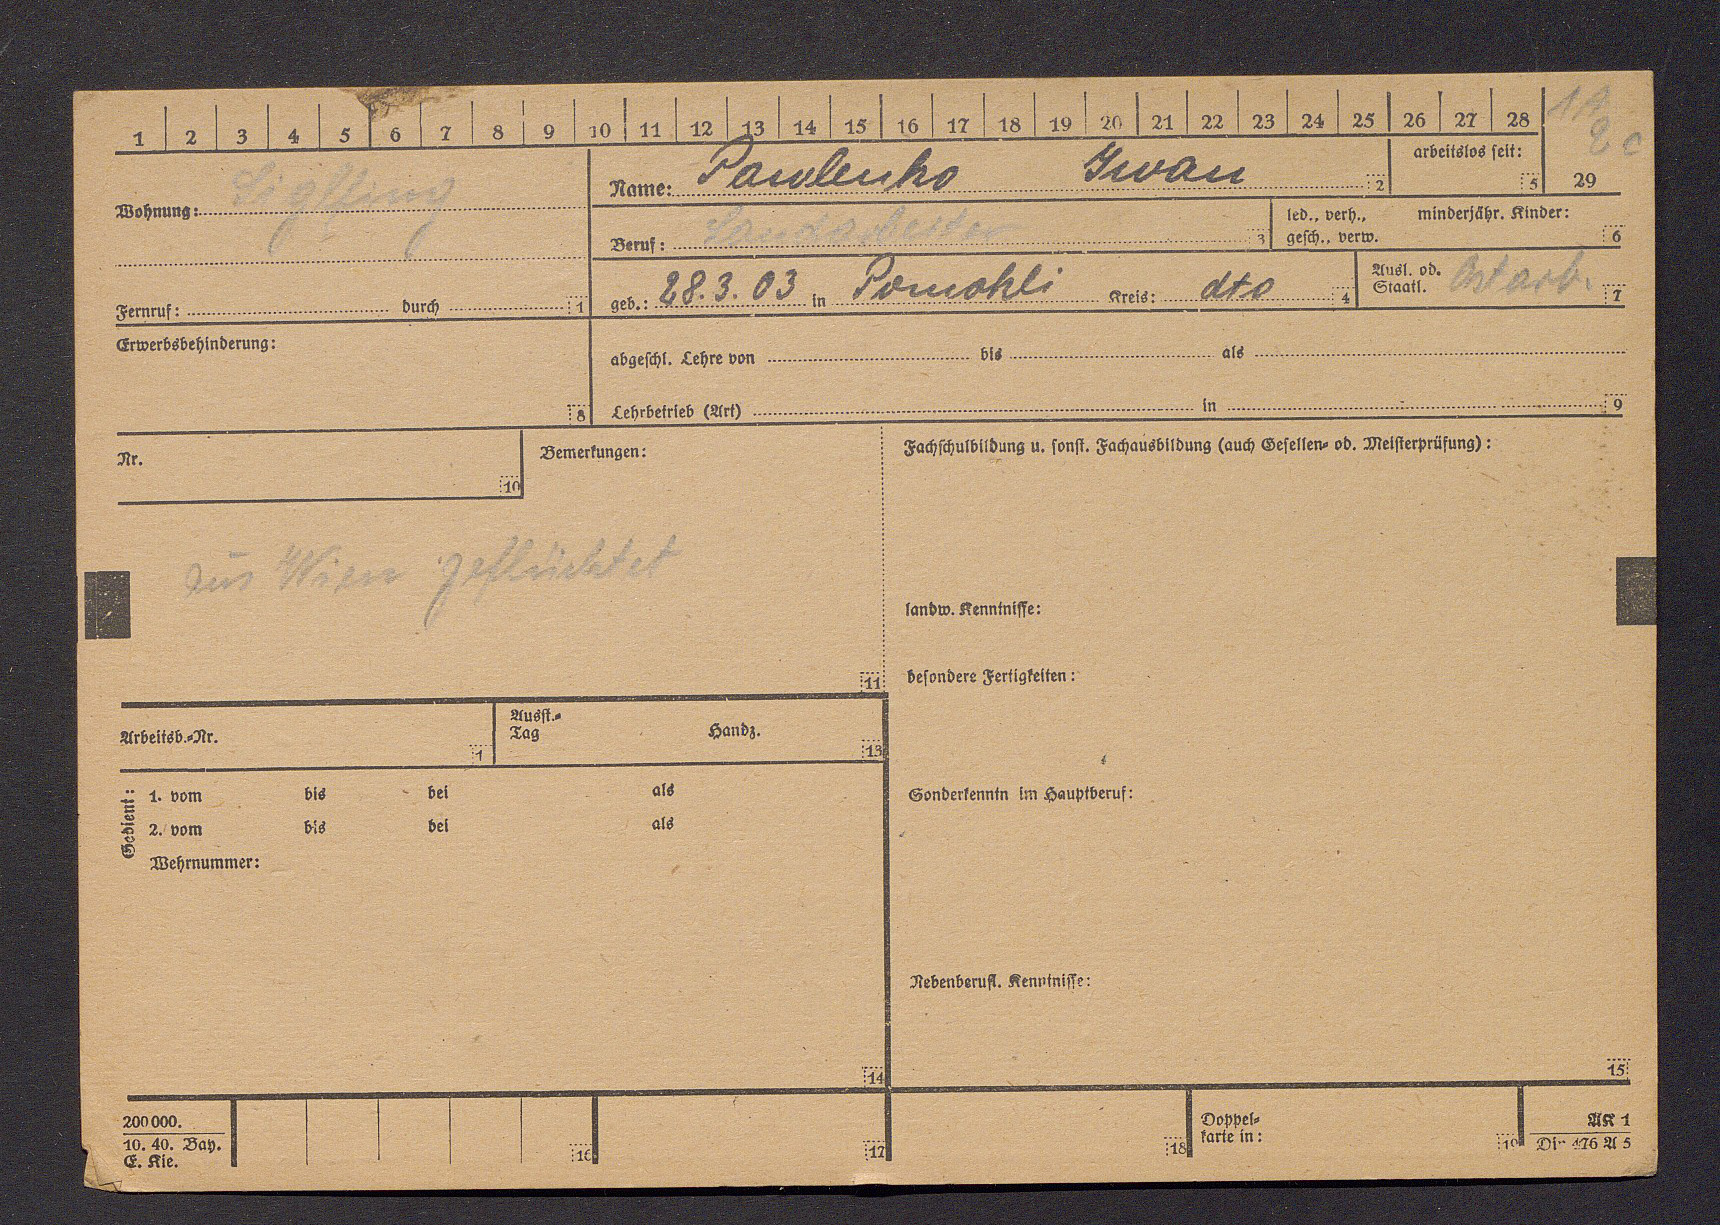 1 2 3 4 5 6 7 8 9 10 11 12 13 14 15 16 17 18 19 20 21 22 23 24 25 26 27 28
29
Wohnung:
Fernruf: durch 1
Name: Pawlenko Iwan 2
arbeitslos seit: 5
Beruf: Landarbeiter 3
led., verh., minderjähr. Kinder:
gesch., verw. 6
geb.: 28.3.03 in Pomokli Kreis: dto 4
Ausl. od. Ostarb.
Staatl. 7
Erwerbsbehinderung:
8
abgeschl. Lehre von bis als
Lehrbetrieb (Art) in 9
Nr.
10
Bemerkungen:
aus Wien geflüchtet
11
Fachschulbildung u. sonst. Fachausbildung (auch Gesellen- od. Meisterprüfung):
landw. Kenntnisse:
besondere Fertigkeiten:
Sonderkenntn im Hauptberuf:
Nebenberufl. Kenntnisse:
15
Arbeitsb.-Nr. 1
Ausst.-
Tag Handz. 13
Gedient:
1. vom bis bei als
2. vom bis bei als
Wehrnummer:
14
200000.
10. 40. Bay.
E. Kie.
16
17
18
Doppel-
karte in: 19
AK 1
Din 476 A 5